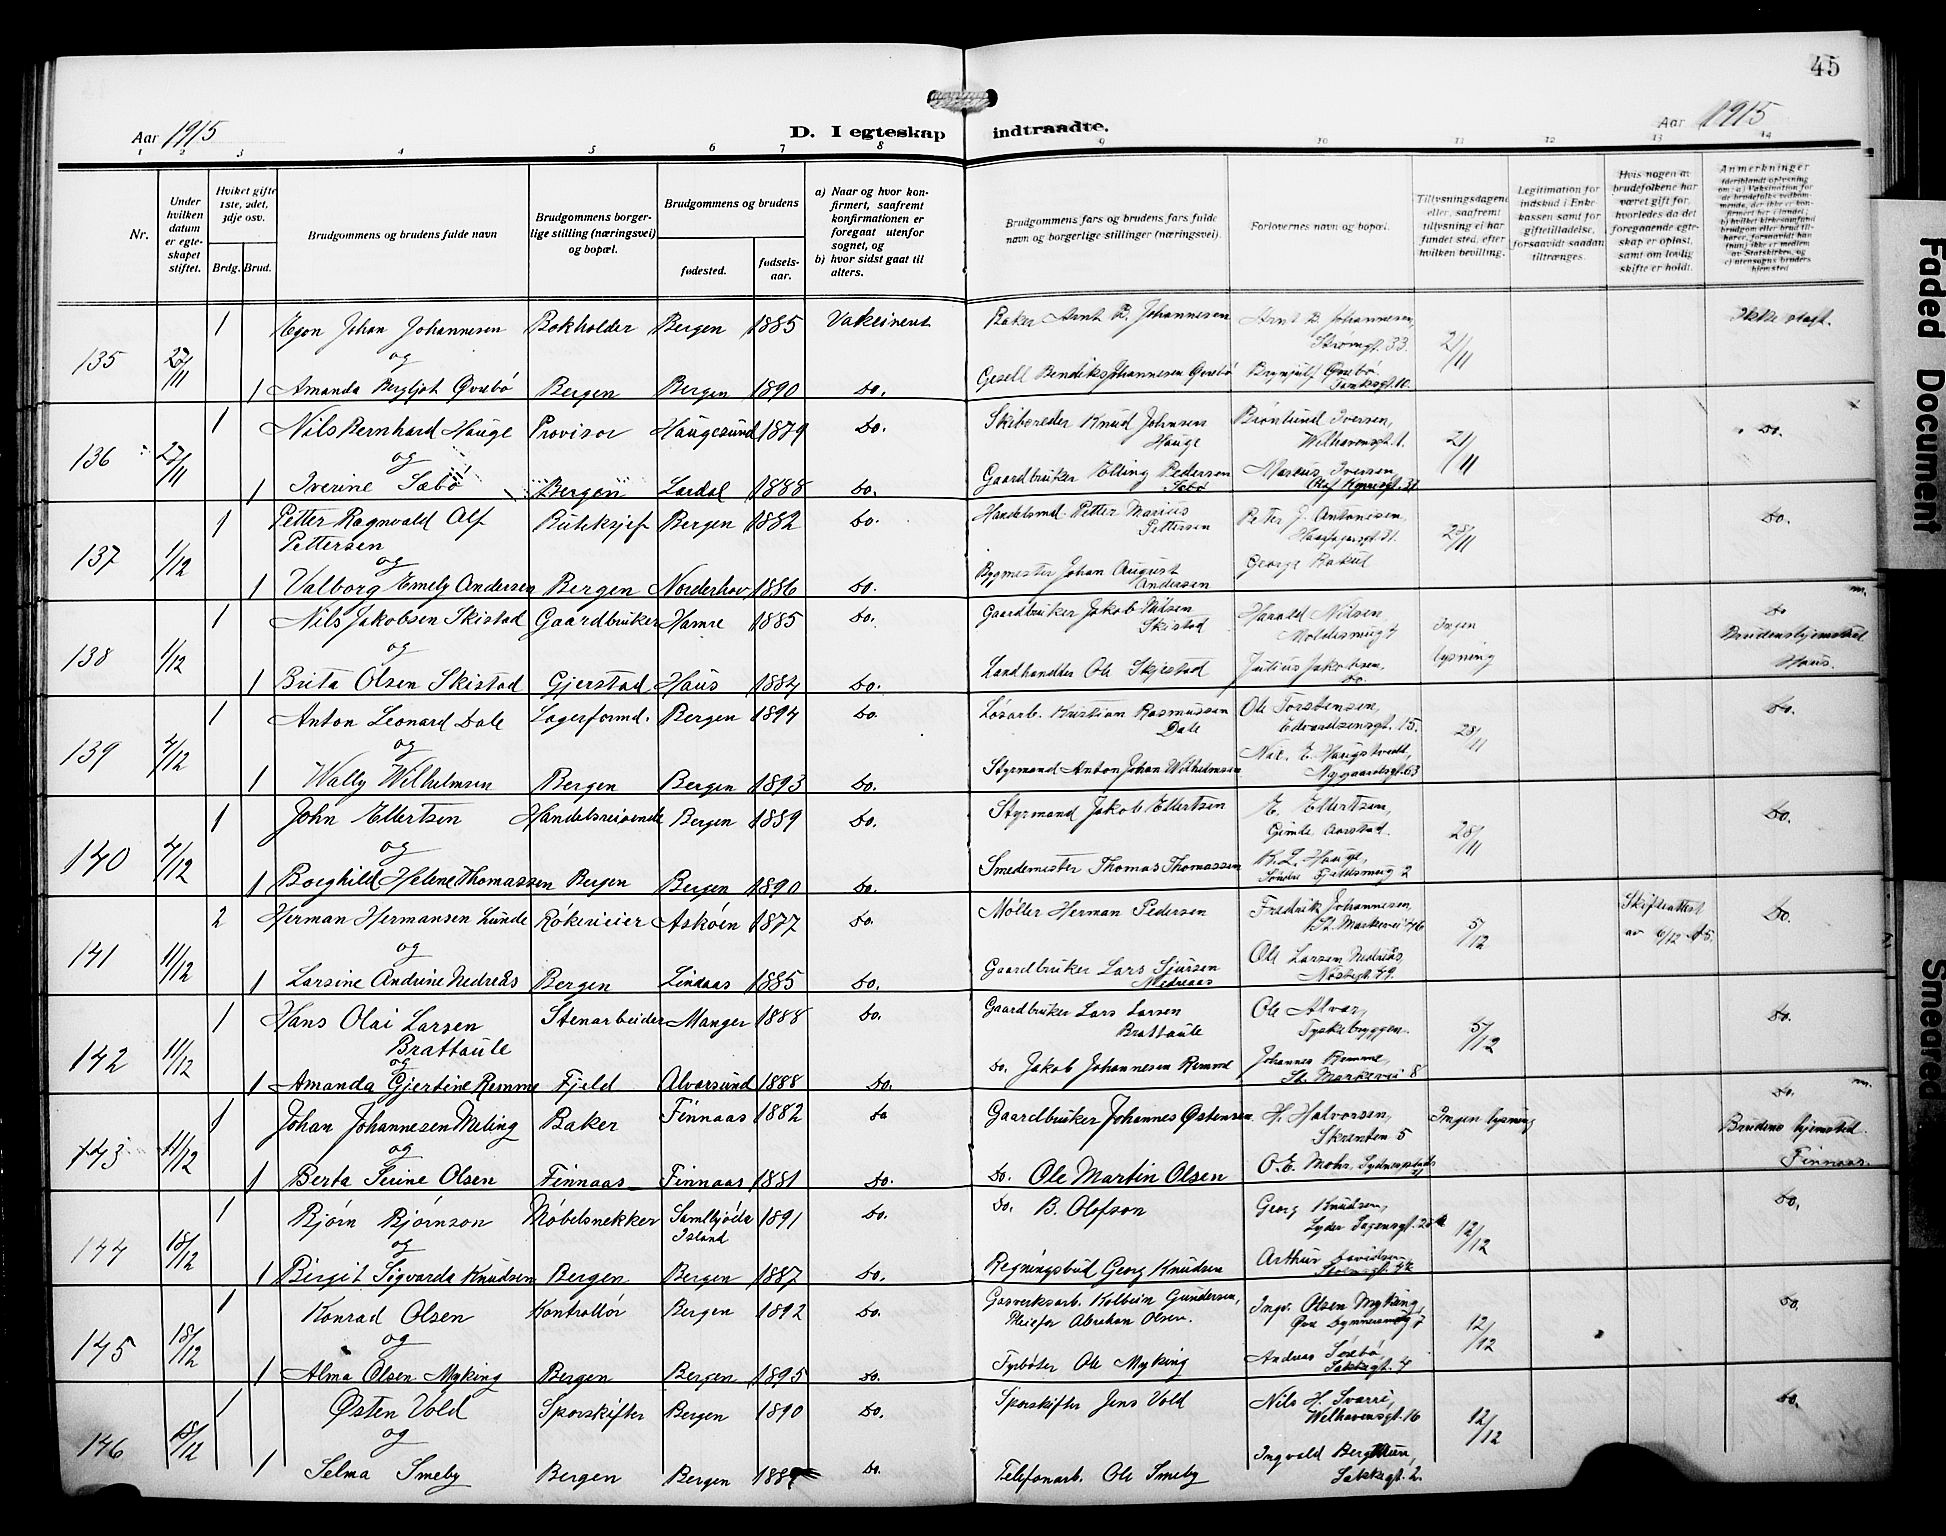 45
Aar 1915
D. I egteskap indtraadte.
Aar 1915
1 2 3 4 5 6 7 8 9 10 11 12 13 14
Nr.
Under hvilken datum er egteskapet stiftet.
Hviket gifte 1ste, 2det, 3dje osv.
Brdg. Brud.
Brudgommens og brudens fulde navn
Brudgommens borgerlige stilling (næringsvei) og bopæl.
Brudgommens og brudens
fødested.
fødselsaar.
a) Naar og hvor konfirmert, saafremt konfirmationen er foregaat utenfor sognet, og
b) hvor sidst gaat til alters.
Brudgommens fars og brudens fars fulde navn og borgerlige stillinger (næringsvei).
Forlovernes navn og bopæl.
Tillysningsdagene eller, saafremt tillysning ei har fundet sted, efter hvilken bevilling.
Legitimation for indskud i Enkekassen samt for giftetilladelse, forsaavidt saadan tiltrænges.
Hvis nogen av brudefolkene har været gift før, hvorledes da det foregaaende egteskap er opløst, samt om lovlig skifte er holdt.
Anmerkninger
135 27/11 1 Egon Johan Johannesen Bokholder Bergen 1885 Vaksineret Baker Arnt B. Johannesen Arnt B Johannesen, Strømgt. 33. 21/11 Ikke slegt.
og
1 Amanda Bergljot Øvrebø Bergen Bergen 1890 Do. Gesell Bendiks Johannesen Øvrebø Brynjulf Øvrebø
136 27/11 1 Nils Bernhard Hauge Provisor Haugesund 1879 Do. Skibsreder Knud Johnsen Hauge Brønlund Iversen, Welhavensgt. 1. 21/11 Do.
og
1 Iverine Sæbø Bergen Lærdal 1888 Do. Gaardbruker Elling Pedersen Sæbø Markus Iversen Olaf Kyrresgt. 31
137 1/12 1 Petter Ragnvald Alf Pettersen Butikksjef Bergen 1882 Do. Handelsmd. Petter Marius Pettersen Peter J. Antonisen, Haarfagersgt. 31. 28/11 Do.
og
1 Valborg Emely Andersen Bergen Norderhov 1886 Do. Bygmester Johan August Andersen George Rakul
138 1/12 1 Nils Jakobsen Skistad Gaardbruker Hamre 1885 Do. Gaardbruker Jakob Nilsen Skistad Harald Nilsen Moldesmug 4 Ingen lysning Do Brudens hjemsted Haus.
og
1 Brita Olsen Skistad Gjerstad, Haus 1884 Do. Landhandler Ole Skjestad Julius Jakobsen, Do.
139 4/12 1 Anton Leonard Dale Lagerformd. Bergen 1894 Do. Løsarb. Kristian Rasmussen Dale Ole Torstensen, Edvardsensgt. 15. 28/11 Do.
og
1 Wally Wilhelmsen Bergen Bergen 1893 Do. Styrmand Anton Johan Wilhelmsen Nygaardsgt. 63
140 4/12 1 John Ellertsen Handelsreisende Bergen 1889 Do. Styrmand Jakob Ellertsen E. Ellertsen, Gimle Aarstad. 28/11 Do.
og
1 Borghild Helene Thomassen Bergen Bergen 1890 Do. Smedemester Thomas Thomassen K. L. Hauge, Søndre Fjeldsmug 2
141 11/12 2 Herman Hermansen Lunde Røkerieier Askøen 1877 Do. Møller Herman Pedersen Fredrik Johannesen, St. Markevei 46 5/12 Skifteattest av 6/12 15. Do.
og
1 Larsine Andrine Nedreås Bergen Lindaas 1885 Do. Gaardbruker Lars Sjursen Nedreaas Ole Larsen Nedreås, Nøstegt. 49.
142 11/12 1 Hans Olai Larsen Brattaule Stenarbeider Manger 1888 Do. Gaardbruker Lars Larsen Brattaule Ole Alver, Tyskebryggen. 5/12 Do.
og
1 Amanda Gjertine Remme Fjeld Alversund 1888 Do. Do. Jakob Johannesen Remme Johannes Remme, St. Markevei 8
143 11/12 1 Johan Johannesen Meling Baker Finnaas 1882 Do Gaardbruker Johannes Østensen H. Halvorsen, Skrenten 5 Ingen lysning Do. Brudens hjemsted Finnaas.
og
1 Berta Serine Olsen Finnaas Finnaas 1881 Do. Do. Ole Martin Olsen O. E. Mohr,
144 18/12 1 Bjørn Bjørnson Møbelsnekker Island 1891 Do. Do. B. Olofson Georg Knudsen, Lyder Sagensgt. 12/12 Do.
og
1 Birgit Sigvarda Knudsen Bergen Bergen 1887 Do. Regningsbud Georg Knudsen Arthur Davidsen,
145 18/12 1 Konrad Olsen Kontrollør Bergen 1892 Do. Gasverksarb. Kolbein Gundersen, Pleiefar Abraham Olsen. Ingv. Olsen Myking, 12/12 Do.
og
1 Alma Olsen Myking Bergen Bergen 1895 Do. Fyrbøter Ole Myking Andreas Sørbø,
146 18/12 1 Østen Vold Sporskifter Bergen 1890 Do. Sporskifter Jens Vold Nils H. Svarré, Welhavensgt. 16 12/12 Do.
og
1 Selma Smeby Bergen Bergen Do. Telefonarb. Ole Smeby Ingvald Bergthun,
Faded Document
Smeared